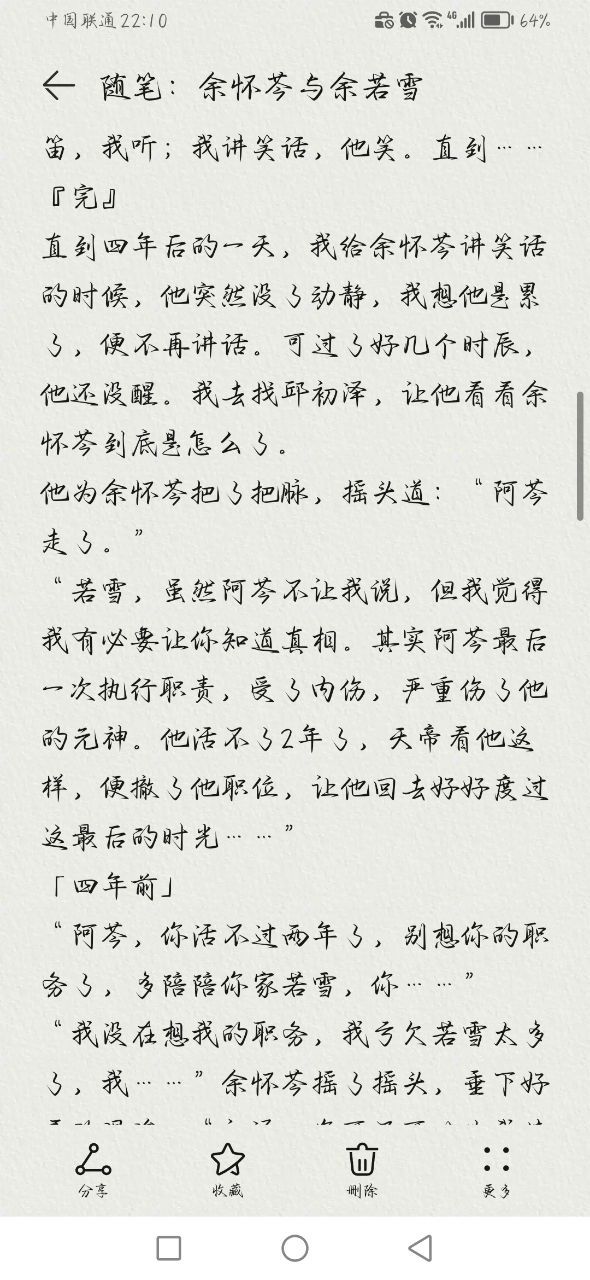 中国联通 22:10
4G
64%
随笔：余怀芩与余若雪
笛，我听；我讲笑话，他笑。直到……
『完』
直到四年后的一天，我给余怀芩讲笑话
的时候，他突然没了动静，我想他是累
了，便不再讲话。可过了好几个时辰，
他还没醒。我去找邱初泽，让他看看余
怀芩到底是怎么了。
他为余怀芩把了把脉，摇头道：“阿芩
走了。”
“若雪，虽然阿芩不让我说，但我觉得
我有必要让你知道真相。其实阿芩最后
一次执行职责，受了内伤，严重伤了他
的元神。他活不了2年了，天帝看他这
样，便撤了他职位，让他回去好好度过
这最后的时光……”
「四年前」
“阿芩，你活不过两年了，别想你的职
务了，多陪陪你家若雪，你……”
“我没在想我的职务，我亏欠若雪太多
了，我……”余怀芩摇了摇头，垂下好
分享
收藏
删除
更多